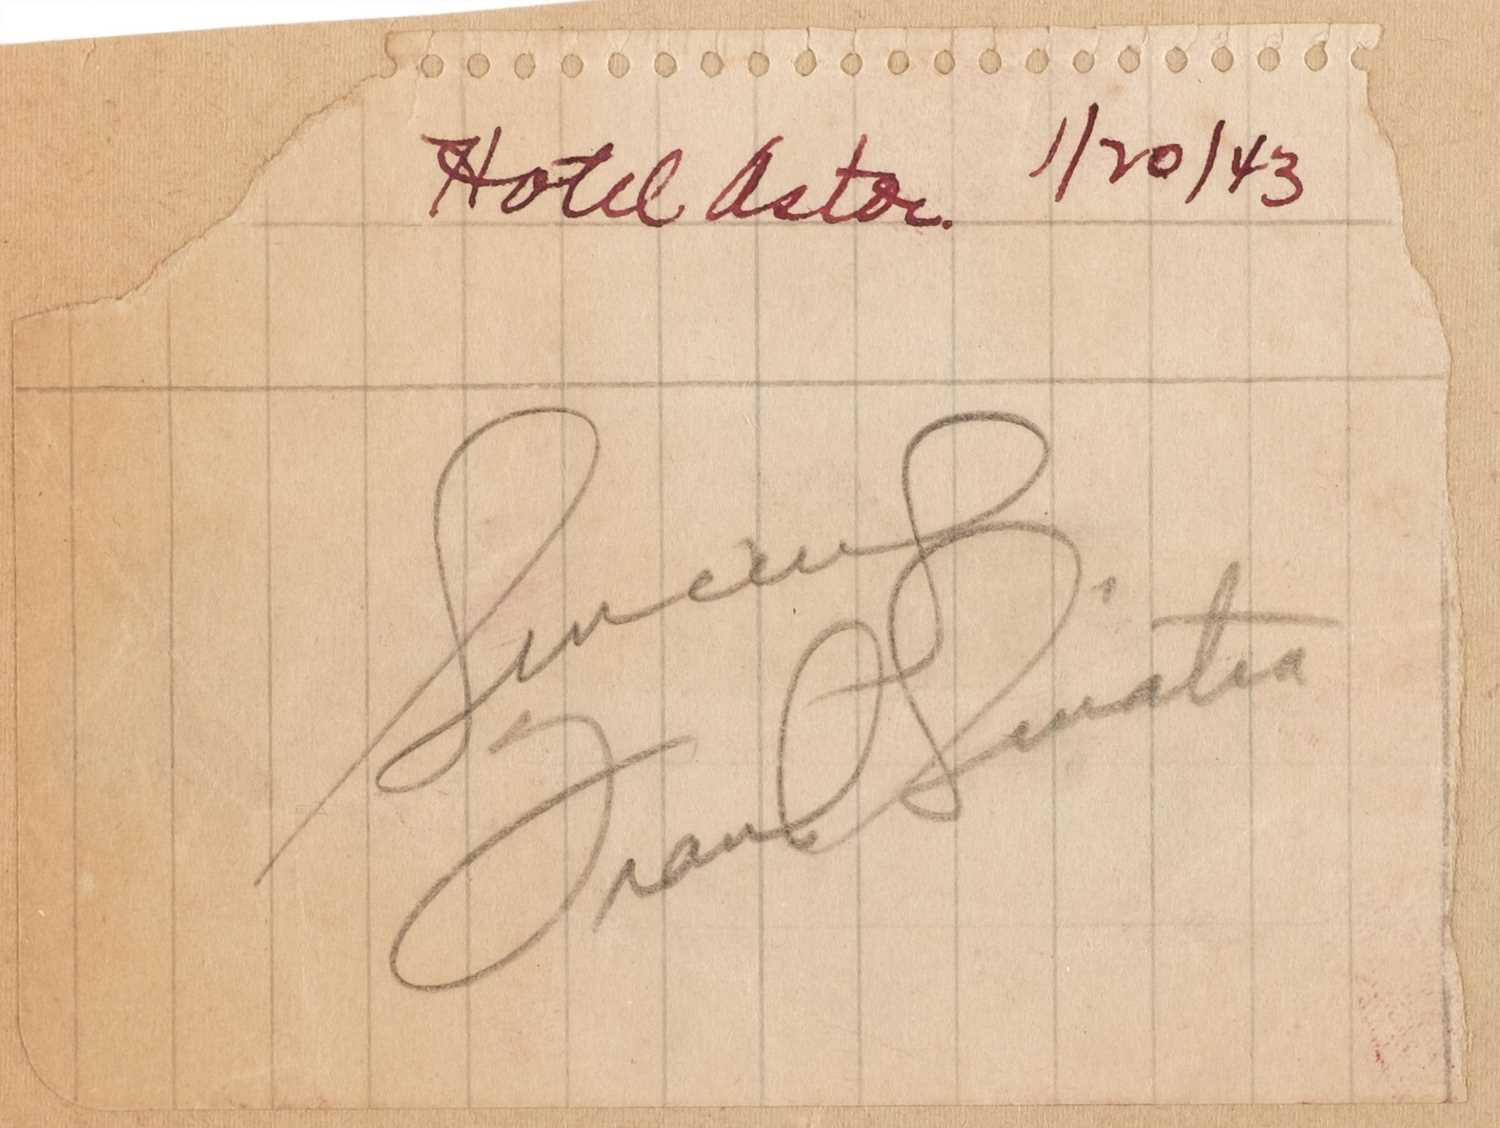 Hotel Astor. 1/20/43
Sincerely
Frank Sinatra